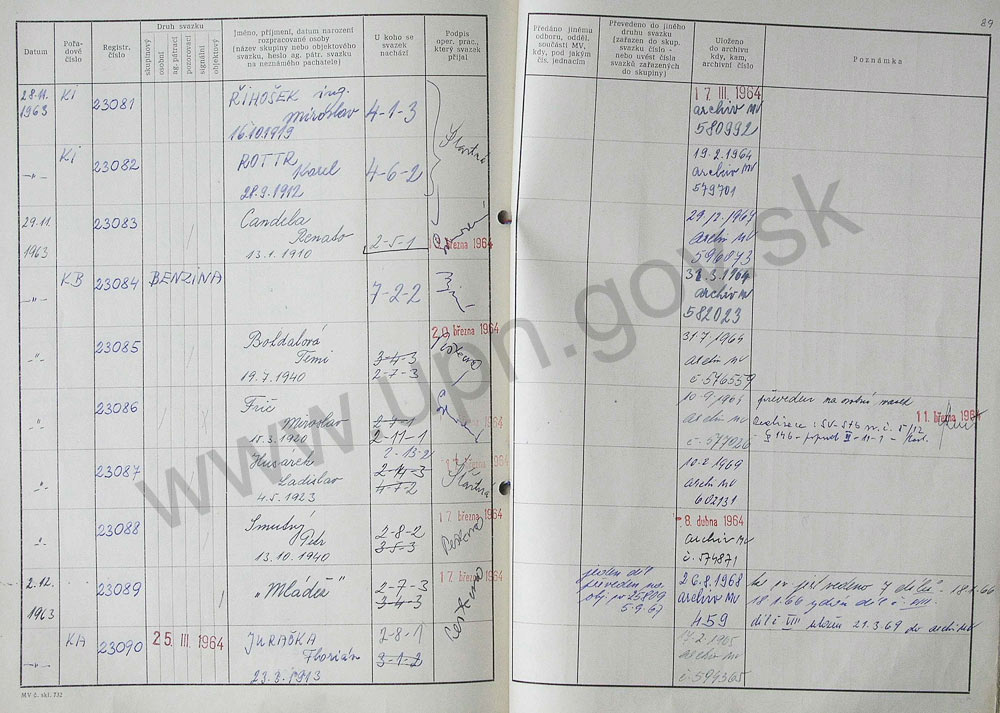 89
Datum
Pořadové číslo
Registr. číslo
Druh svazku
skupinový
osobní
ag. pátrací
pozorovací
signální
objektový
Jméno, příjmení, datum narození
rozpracované osoby
(název skupiny nebo objektového
svazku, heslo ag. pátr. svazku
na neznámého pachatele)
U koho se
svazek
nachází
Podpis
oper. prac.,
který svazek
přijal
Předáno jinému
odboru, odděl.
součásti MV,
kdy, pod jakým
čís. jednacím
Převedeno do jiného
druhu svazku
(zařazen do skup.
svazku číslo -
nebo uvést čísla
svazků zařazených
do skupiny)
Uloženo
do archivu
kdy, kam,
archivní číslo
Poznámka
28.11. 1963
KI
23081
ŘIHOŠEK ing.
Miroslav
16.10.1919
4-1-3
17. III. 1964
archiv MV
580992
-"-
KI
23082
ROTTR
Karel
28.9.1912
4-6-2
19.2.1964
archiv MV
579701
29.11.
1963
23083
Candela
Renato
13.1.1910
2-5-1
března 1964
29.12.1964
archiv MV
596873
-"-
KB
23084
BENZINA
7-2-2
31.3.1964
archiv MV
582023
-"-
23085
Boldalová
Temi
19.7.1940
3-4-3
2-7-3
20. března 1964
31.7.1964
archiv MV
č. 576559
-"-
23086
Frič
Miroslav
15.3.1920
2-7-1
2-11-1
10.9.1964
archiv MV
č. 577026
převeden na osobní
11. března 1964
-"-
23087
Husárek
Ladislav
4.5.1923
2-13-2
2-14-3
4-7-2
10.2.1969
archiv MV
602131
-"-
23088
Smutný
Petr
13.10.1940
2-8-2
3-5-3
17. března 1964
8. dubna 1964
archiv MV
č. 574871
2.12.
1963
23089
"Mládě"
2-7-3
3-4-3
17. března 1964
jeden díl
převeden na
obj. po 25809
5.9.67
26.8.1968
archiv MV
459
18.1.66
díl č. VIII
21.3.69 do archi MV
-"-
KA
23090
25. III. 1964
JURAČKA
Florián
23.8.1913
2-8-1
3-1-2
17.2.1965
archiv MV
č. 599365
MV č. skl. 732
www.upn.gov.sk